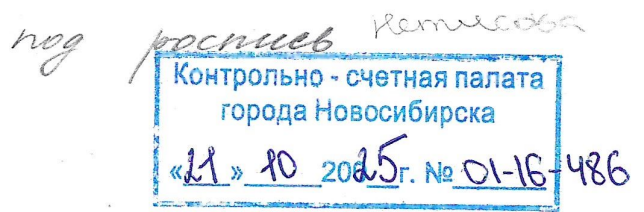 под роспись
Контрольно - счетная палата
города Новосибирска
«21» 10 2025г. № 01-16-486